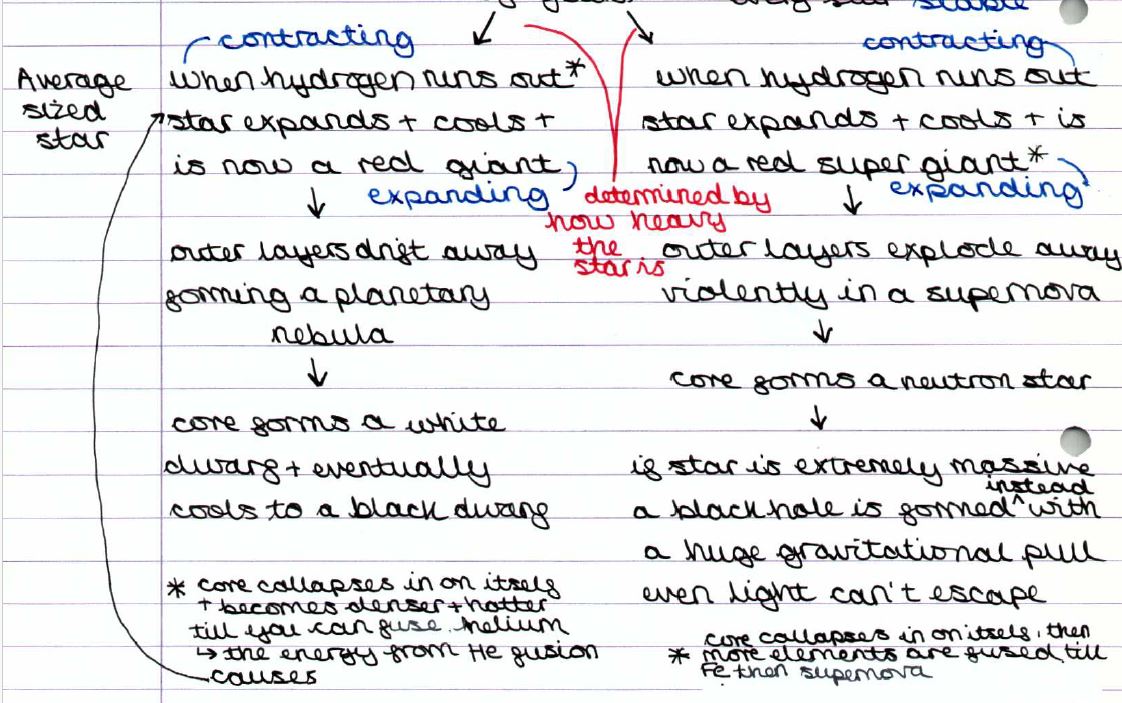 stable
contracting
contracting
Average
sized
star
when hydrogen runs out*
star expands + cools +
is now a red giant
expanding
when hydrogen runs out
star expands + cools + is
now a red super giant*
expanding
determined by
how heavy
the
star is
outer layers drift away
forming a planetary
nebula
core forms a white
dwarf + eventually
cools to a black dwarf
* core collapses in on itself
+ becomes denser + hotter
till you can fuse helium
↳ the energy from He fusion
causes
outer layers explode away
violently in a supernova
core forms a neutron star
if star is extremely massive
instead
a black hole is formed ^ with
a huge gravitational pull
even light can't escape
core collapses in on itself, then
* more elements are fused till
Fe then supernova